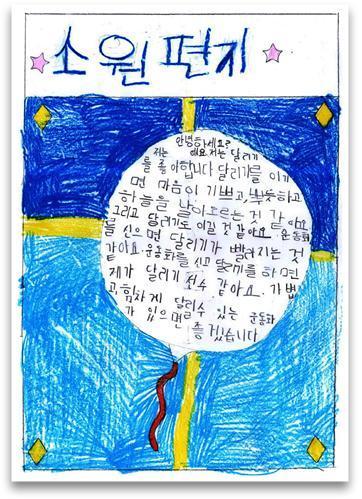 소원편지
안녕하세요?
저는 예요. 저는 달리기
를 좋아합니다 달리기를 이기
면 마음이 기쁘고, 뿌듯하고
하늘을 날아오르는 것 같아요.
그리고 달리기도 이길 것 같아요. 운동화
를 신으면 달리기가 빨라지는 것
같아요. 운동화를 신고 달리기를 하면
제가 달리기 선수 같아요. 가볍
고, 힘차게 달릴수 있는 운동화
가 있으면 좋겠습니다